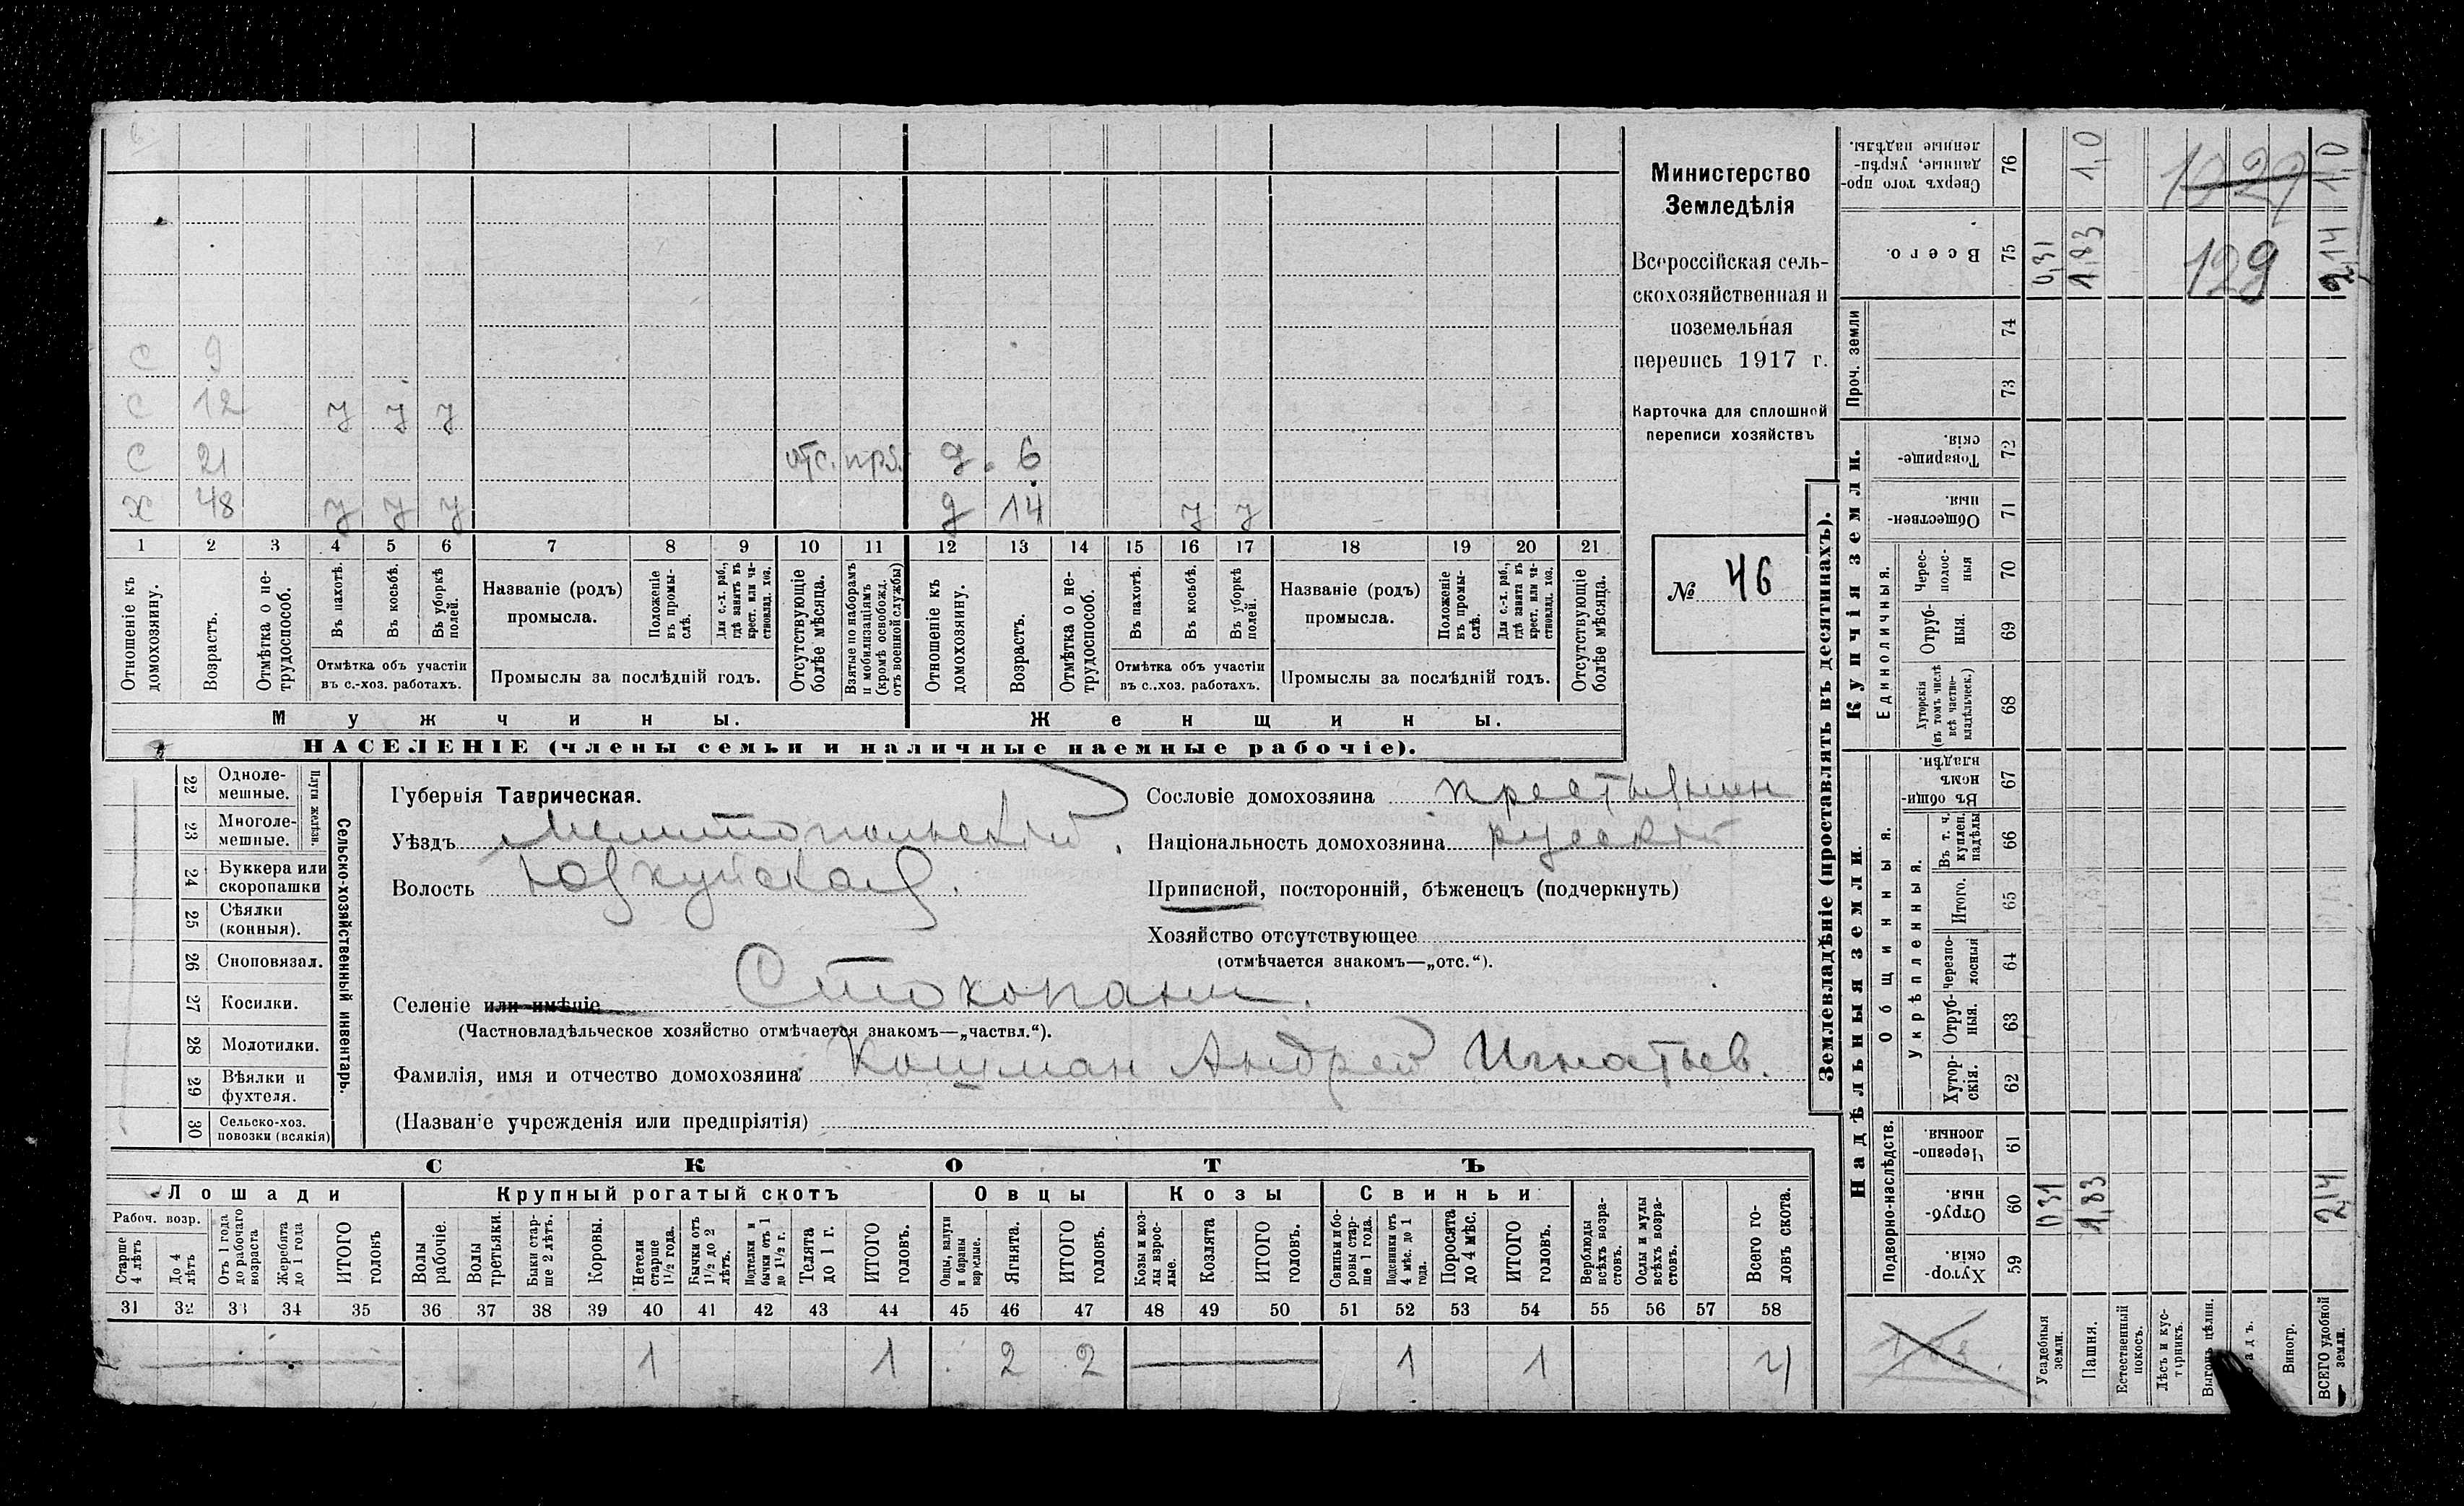 Министерство
Земледѣлія
Всероссійская сель-
скохозяйственная и
поземельная
перепись 1917 г.
Карточка для сплошной
переписи хозяйствъ
№ 46
С 9
С 12 у у у
С 21 отс. приз. д. 6
Х 48 у у у д 14 у у
1 2 3 4 5 6 7 8 9 10 11 12 13 14 15 16 17 18 19 20 21
Отношеніе къ домохозяину.
Возрастъ.
Отмѣтка о не-трудоспособ.
Въ пахотѣ.
Въ косьбѣ.
Въ уборкѣ полей.
Отмѣтка объ участіи
въ с.-хоз. работахъ.
Названіе (родъ)
промысла.
Положеніе въ промы-слѣ.
Для с.-х. раб., гдѣ занятъ въ крест. или ча-стновлад. хоз.
Промыслы за послѣдній годъ.
Отсутствующіе болѣе мѣсяца.
Взятые по наборамъ и мобилизаціямъ (кромѣ освобожд. отъ военной службы)
Отношеніе къ домохозяину.
Возрастъ.
Отмѣтка о не-трудоспособ.
Въ пахотѣ.
Въ косьбѣ.
Въ уборкѣ полей.
Отмѣтка объ участіи
въ с..хоз. работахъ.
Названіе (родъ)
промысла.
Положеніе въ промы-слѣ.
Для с.-х. раб., гдѣ занята въ крест. или ча-стновлад. хоз.
Промыслы за послѣдній годъ.
Отсутствующіе болѣе мѣсяца.
Мужчины.
Женщины.
НАСЕЛЕНІЕ (члены семьи и наличные наемные рабочіе).
Сельско-хозяйственный инвентарь.
Плуги желѣзн.
22 Одноле-мешные.
23 Многоле-мешные.
24 Буккера или скоропашки
25 Сѣялки (конныя).
26 Сноповязал.
27 Косилки.
28 Молотилки.
29 Вѣялки и фухтеля.
30 Сельско-хоз. повозки (всякія)
Губернія Таврическая.
Уѣздъ Мелитопольскій
Волость Юзкуйская
Селеніе или имѣніе Стокопани.
(Частновладѣльческое хозяйство отмѣчается знакомъ—„частвл.“).
Фамилія, имя и отчество домохозяина Кошман Андрей Игнатьев.
(Названіе учрежденія или предпріятія)
Сословіе домохозяина крестьянин
Національность домохозяина русскій
Приписной, посторонній, бѣженецъ (подчеркнуть)
Хозяйство отсутствующее
(отмѣчается знакомъ—„отс.“).
СКОТЪ
Лошади
Крупный рогатый скотъ
Овцы
Козы
Свиньи
Рабоч. возр.
Старше 4 лѣтъ
До 4 лѣтъ
Отъ 1 года до рабочаго возраста
Жеребята до 1 года
ИТОГО головъ
Волы рабочіе.
Волы третьяки.
Быки стар-ше 2 лѣтъ.
Коровы.
Нетели старше 1½ года.
Бычки отъ 1½ до 2 лѣтъ.
Подтелки и бычки отъ 1 до 1½ г.
Телята до 1 г.
ИТОГО головъ.
Овцы, валухи и бараны взрослые.
Ягнята.
ИТОГО головъ.
Козы и коз-лы взрос-лые.
Козлята
ИТОГО головъ.
Свиньи и бо-ровы стар-ше 1 года.
Подсвинки отъ 4 мѣс. до 1 года.
Поросята до 4 мѣс.
ИТОГО головъ.
Верблюды всѣхъ возра-стовъ.
Ослы и мулы всѣхъ возра-стовъ.
Всего го-ловъ скота.
31 32 33 34 35 36 37 38 39 40 41 42 43 44 45 46 47 48 49 50 51 52 53 54 55 56 57 58
1 1 2 2 1 1 4
Землевладѣніе (проставлять въ десятинахъ).
Надѣльныя земли.
Купчія земли.
Подворно-наслѣдств.
Общинныя.
Укрѣпленныя.
Единоличныя.
Проч. земли
59 Хутор-скія.
60 Отруб-ныя.
61 Черезпо-лосныя.
62 Хутор-скія.
63 Отруб-ныя.
64 Черезпо-лосныя
65 Итого.
66 Въ т. ч. куплен. надѣлы
67 Въ общи-номъ владѣн.
68 Хуторскія (въ томъ числѣ всѣ частно-владѣльческ.)
69 Отруб-ныя.
70 Черес-полос-ныя
71 Обществен-ныя.
72 Товарище-скія.
73
74
75 Всего.
76 Сверхъ того про-данные, укрѣп-ленные надѣлы.
Усадебныя земли.
0,31 0,31
Пашня.
1,83 1,83 1,0
Естественный покосъ.
Лѣсъ и кус-тарникъ.
Выгонъ цѣлин.
Виногр.
ВСЕГО удобной земли.
2,14 2,14 1,0
129